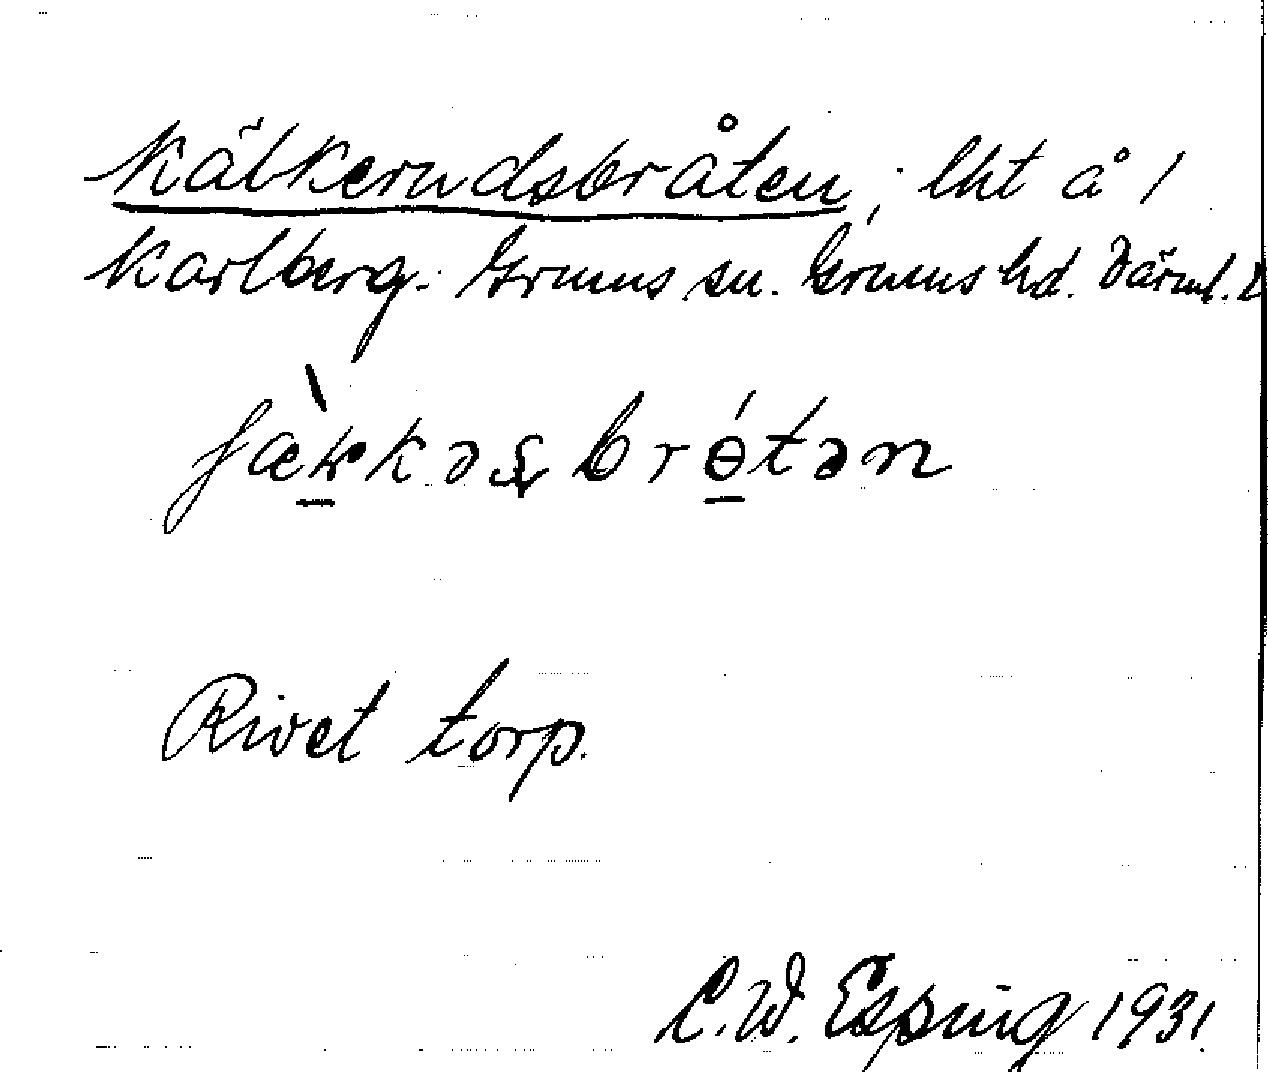 Kälkerudsbråten, lht å 1
Karlberg. Grums sn. Grums hd. Värml.
fækkəsbrɵ́tən
Rivet torp.
C.W. Esping 1931.